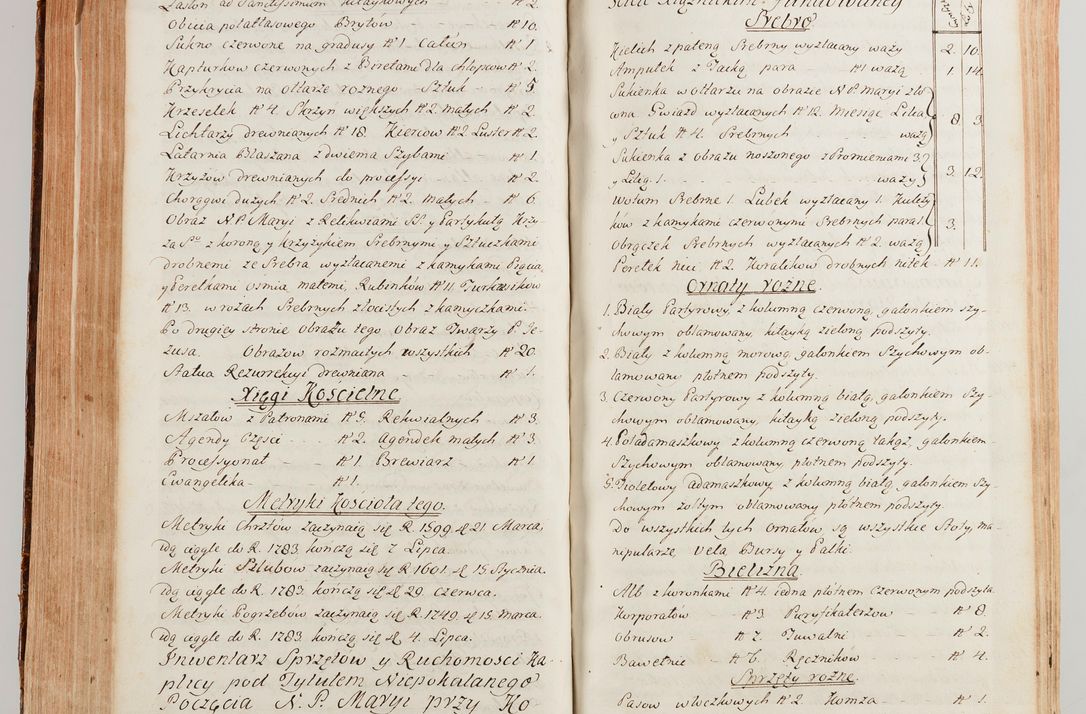 Zasłon ad Sanctissimum kitaykowych - № 2.
Obicia pułatłasowego Brytow № 10.
Sukno czerwone na gradusy № 1. Całun - № 1
Kapturkow czerwonych z Biretami dla chłopcow № 2.
Przykrycia na ołtarze rożnego - Sztuk - № 5
Krzesełek № 4. Skrzyn większych № 2. małych - № 2.
Lichtarzy drewnianych № 18. Kiercow № 2. Luster № 2.
Latarnia Blaszana z dwiema Szybami - № 1.
Krzyżow drewnianych do processyi - № 2.
Chorągwi dużych № 2. Srednich № 2. małych - № 6.
Obraz N P Maryi z Relikwiami SS. y Partykułą Krzy-
ża S° z koroną y krzyżykiem Srebrnymi y Sztuczkami
drobnemi ze Srebra wyzłacanemi z kamykami Pięcią,
y Perełkami osmią małemi, Rubinkow № 11. Turkusikow
№ 13. w rożach Srebrnych złocistych z kamyczkami.
Po drugiey stronie obrazu tego, obraz Twarzy P. Je-
zusa. Obrazow rozmaitych wszystkich - № 20.
Statua Rezurrekcyi drewniana - № 1.
Xięgi Kościelne
Mszałow z Patronami № 5. Rekwialnych - № 3.
Agendy Części - - № 2. Agendek małych № 3.
Processyonał - - № 1. Brewiarz - № 1.
Ewangelika - № 1.
Metryki Kościoła tego.
Metryki Chrztow zaczynaią się R. 1599. d 21. Marca,
idą ciągle do R. 1783. kończą się 7 Lipca.
Metryki Szlubow zaczynaią się R 1601. d 15. Stycznia.
idą ciągle do R. 1783. kończą się d 29. Czerwca.
Metryki Pogrzebow zaczynaią się R. 1749. d 15. marca.
idą ciągle do R. 1783. kończą się d. 4. Lipca.
Inwentarz Sprzętow y Ruchomości Ka-
plicy pod Tytułem Niepokalanego
Poczęcia N. P. Maryi przy Ko-
Srebro
Kielich z pateną Srebrny wyzłacany waży 2. 10.
Ampułek z Tacką para № 1 ważą 1. 14.
Sukienka w ołtarzu na obrazie N P Maryi zło-
cona Gwiazd wyzłacanych № 12. Miesiąc Lilia
y Sztuk № 4. Srebrnych - - ważą 8 3.
Sukienka z obrazu noszonego z Promieniami 3.
y Lilią. 1. - - - waży 3. 12.
Wotum Srebrne 1. Lubek wyzłacany 1. Kulczy-
kow z kamykami czerwonymi Srebrnych para 1
Obrączek Srebrnych wyzłacanych № 2. ważą 3.
Perełek nici № 2. Koralikow drobnych nitek - № 11.
Ornaty rożne.
1. Biały Partyrowy, z kolumną czerwoną, galonkiem szy-
chowym oblamowany, kitayką zieloną podszyty.
2. Biały z kolumną morową, galonkiem Szychowym ob-
lamowany płotnem podszyty.
3 Czerwony Partyrowy z kolumną białą, galonkiem Szy-
chowym oblamowany, kitayką zieloną podszyty.
4. Poładamaszkowy z kolumną czerwoną takąż, galonkiem
Szychowym oblamowany, płotnem podszyty.
5. Fioletowy adamaszkowy, z kolumną białą, galonkiem Szy-
chowym żołtym oblamowany płotnem podszyty.
Do wszystkich tych Ornatow są wszystkie Stoły, ma-
nipularze, Vela Bursy y Palki.
Bielizna
Alb z koronkami № 4. iedna płotnem czerwonym podszyta
Korporałow № 3. Puryfikaterzow № 8.
Obrusow № 7. Tuwalni - - № 2.
Bawetnie - № 6. Ręcznikow - - № 4.
Sprzęty rożne.
Pasow włoczkowych № 2. Komża - № 1.